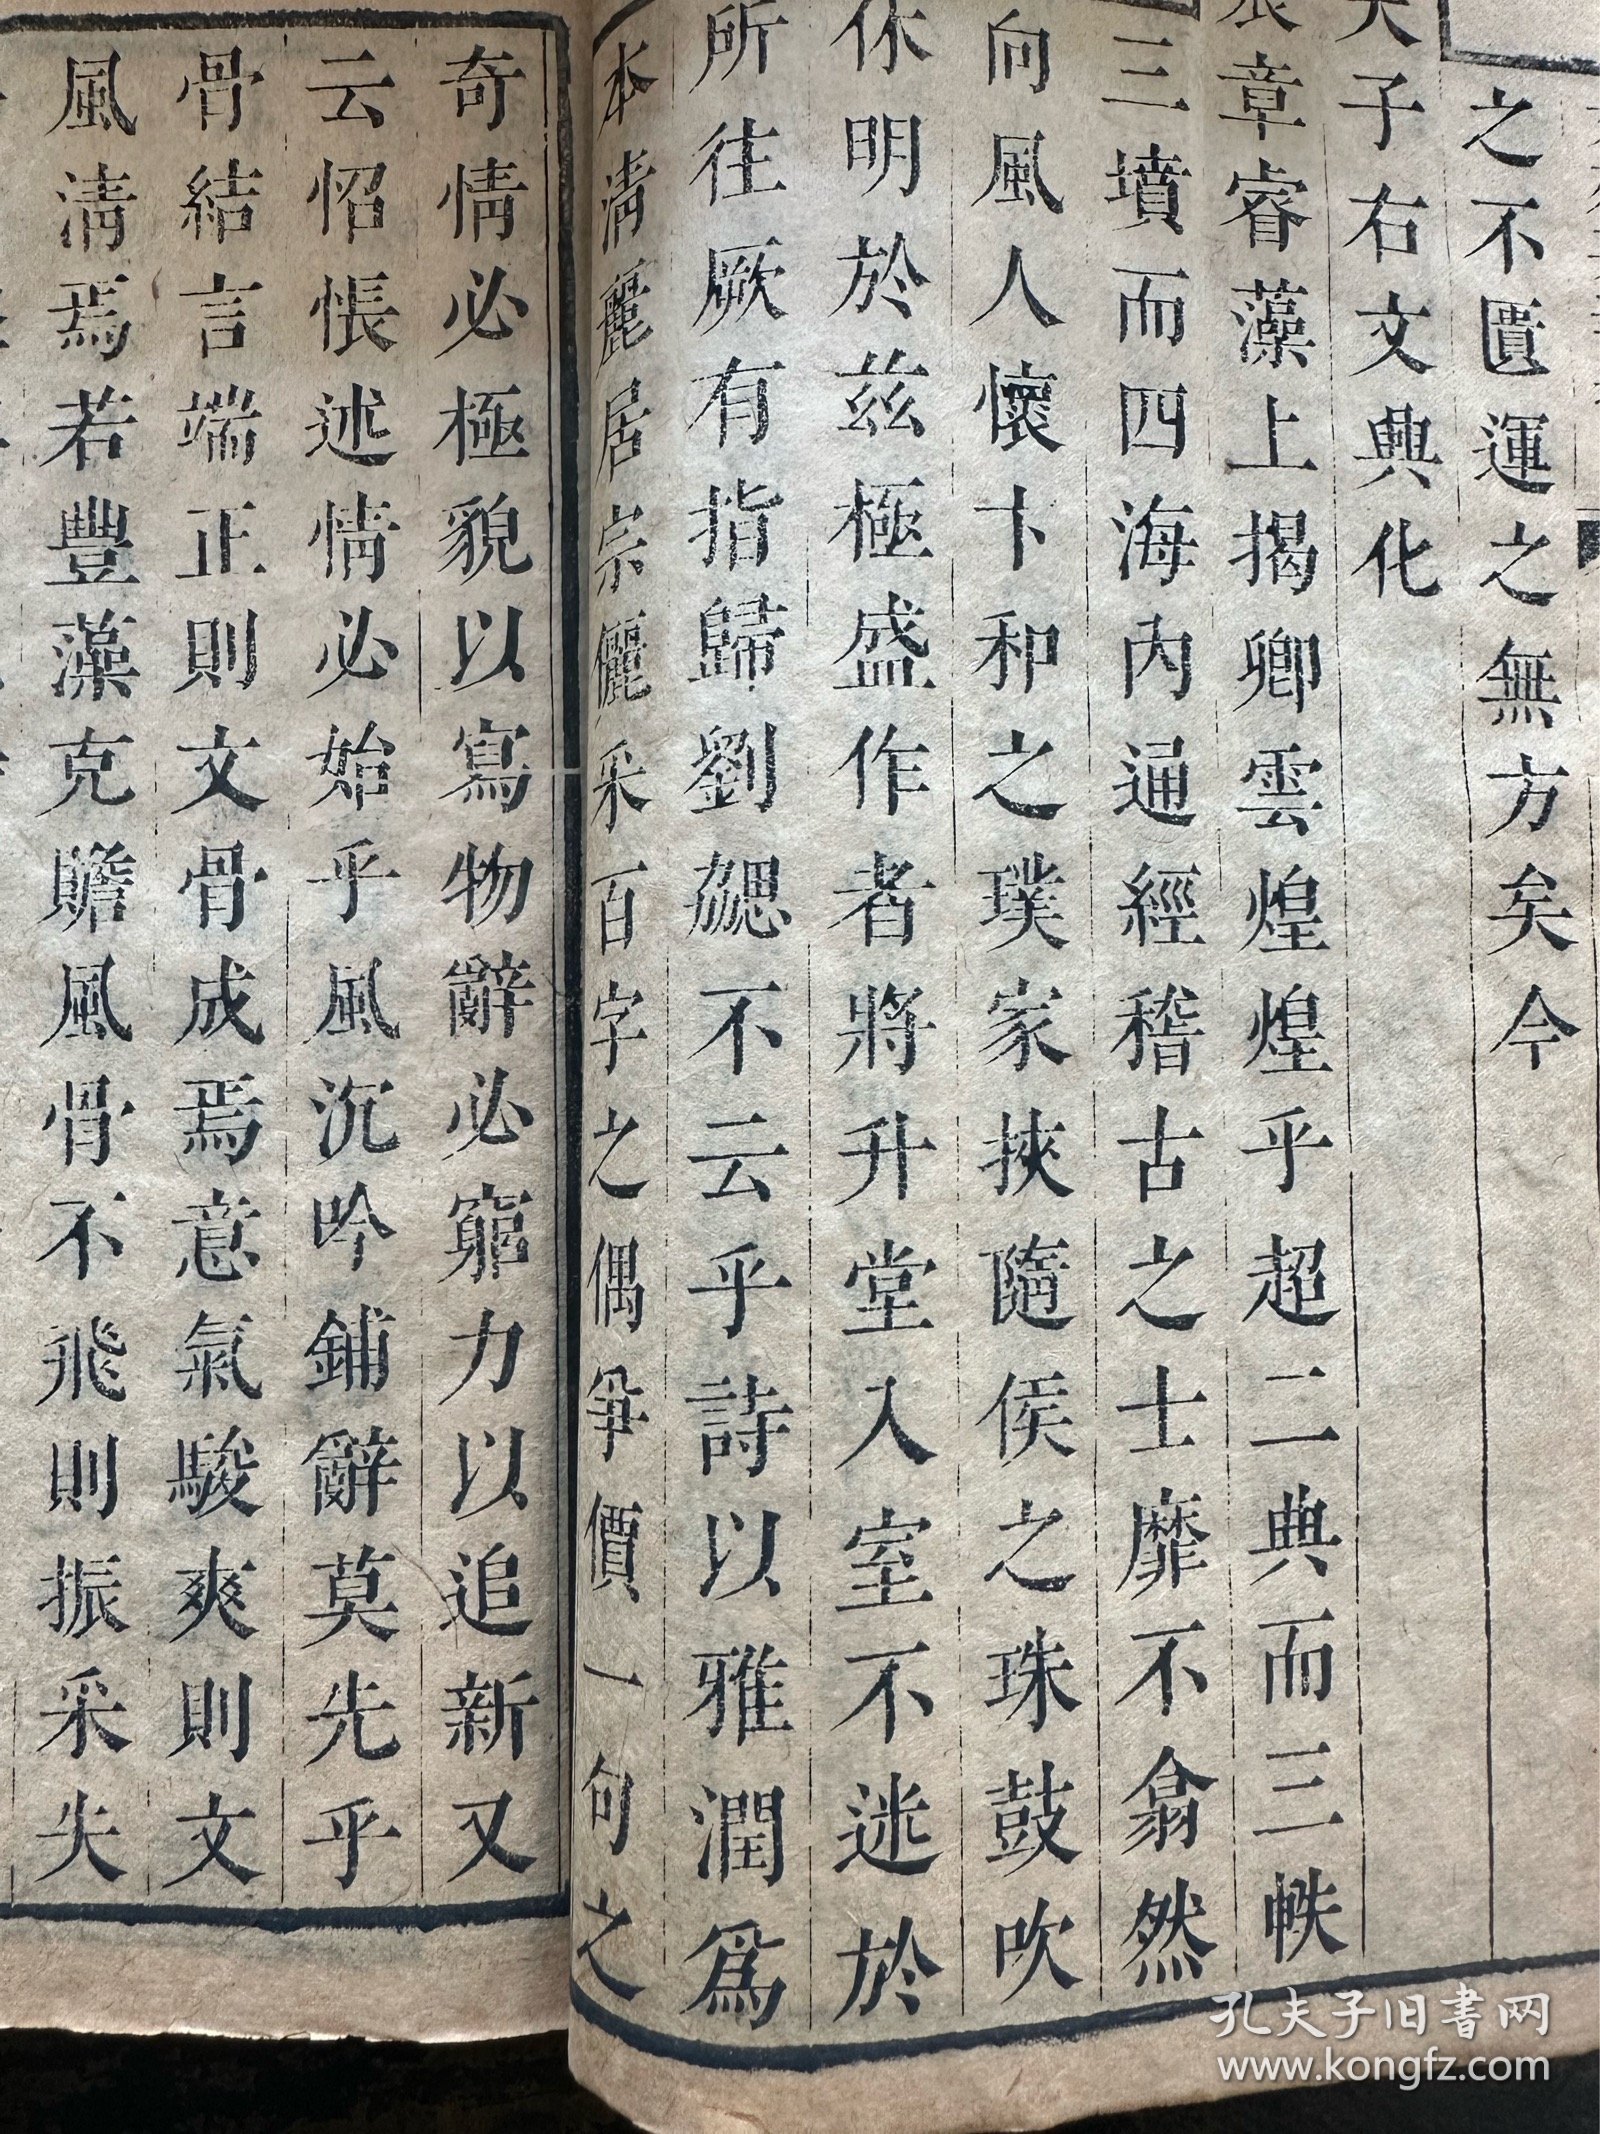 之不匱運之無方矣今
天子右文興化
宸章睿藻上揭卿雲煌煌乎超二典而三帙
三墳而四海內通經稽古之士靡不翕然
向風人懷卞和之璞家挾隨侯之珠鼓吹
休明於兹極盛作者將升堂入室不迷於
所往厥有指歸劉勰不云乎詩以雅潤爲
本淸麗居宗儷采百字之偶爭價一句之
奇情必極貌以寫物辭必窮力以追新又
云怊悵述情必始乎風沉吟鋪辭莫先乎
骨結言端正則文骨成焉意氣駿爽則文
風淸焉若豐藻克贍風骨不飛則振采失
孔夫子旧書网
www.kongfz.com